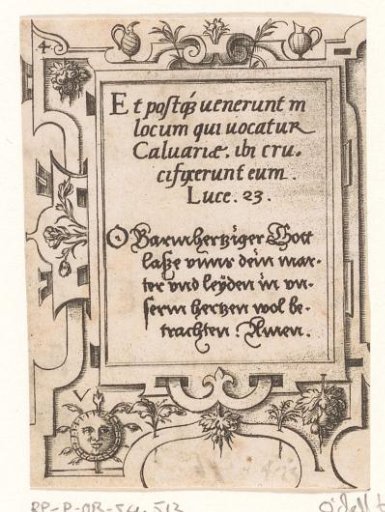 4
Et postq́ȝ uenerunt in
locum qui uocatur
Caluariæ. ibi cru-
cifixerunt eum.
Luce. 23.
O Barmhertziger Gott
laße vnns dein mar-
ter vnd leÿden in vn-
serm hertzen wol be-
trachten. Amen.
V
RP-P-OB-54.513